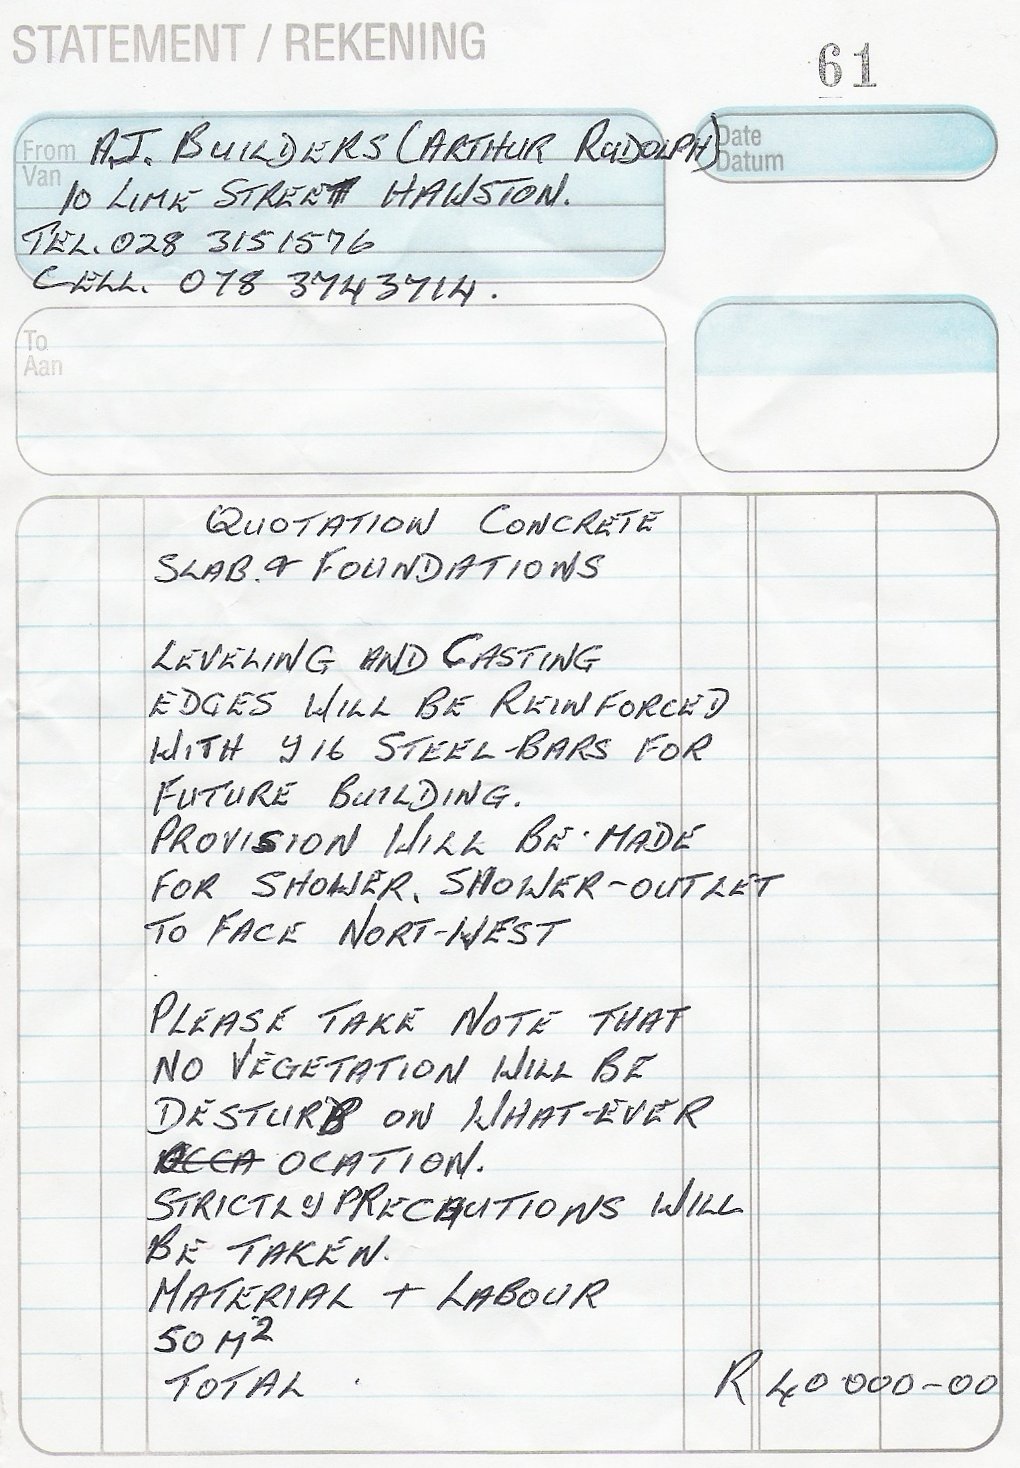 STATEMENT / REKENING
61
From
Van
A.J. BUILDERS (ARTHUR RUDOLPH)
10 LIME STREET HAWSTON.
TEL. 028 3151576
CELL. 078 3743714.
Date
Datum
To
Aan
QUOTATION CONCRETE
SLAB. & FOUNDATIONS
LEVELING AND CASTING
EDGES WILL BE REINFORCED
WITH Y16 STEEL-BARS FOR
FUTURE BUILDING.
PROVISION WILL BE MADE
FOR SHOWER. SHOWER-OUTLET
TO FACE NORT-WEST
PLEASE TAKE NOTE THAT
NO VEGETATION WILL BE
DESTURB ON WHAT-EVER
OCCA OCATION.
STRICTLY PRECAUTIONS WILL
BE TAKEN.
MATERIAL + LABOUR
50 M²
TOTAL R 40 000-00